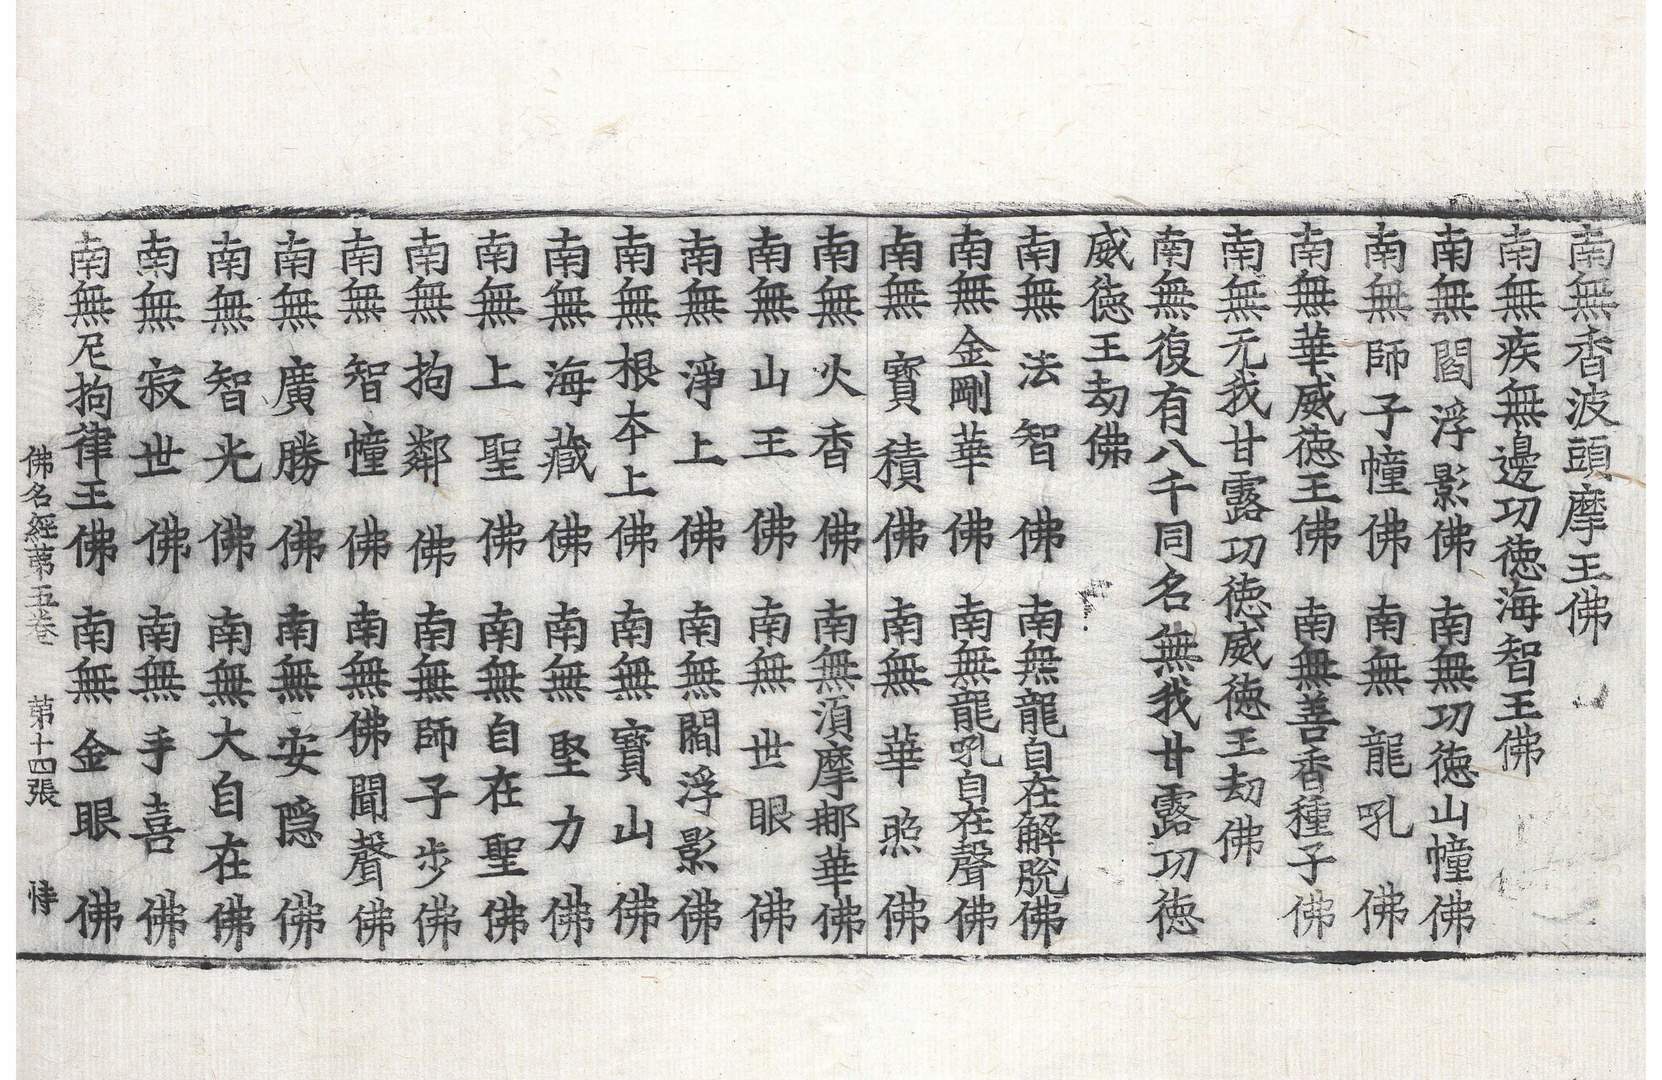 南無香波頭摩王佛
南無疾無邊功德海智王佛
南無閻浮影佛 南無功德山幢佛
南無師子幢佛 南無龍吼佛
南無華威德王佛 南無善香種子佛
南無无我甘露功德威德王劫佛
南無復有八千同名無我甘露功德
威德王劫佛
南無法智佛 南無龍自在解脫佛
南無金剛華佛 南無龍吼自在聲佛
南無寶積佛 南無華照佛
南無火香佛 南無湏摩那華佛
南無山王佛 南無世眼佛
南無淨上佛 南無閻浮影佛
南無根夲上佛 南無寶山佛
南無海藏佛 南無堅力佛
南無上聖佛 南無自在聖佛
南無拘鄰佛 南無師子步佛
南無智幢佛 南無佛聞聲佛
南無廣勝佛 南無安隱佛
南無智光佛 南無大自在佛
南無寂世佛 南無手喜佛
南無尼拘律王佛 南無金眼佛
佛名經苐五卷 苐十四張 恃